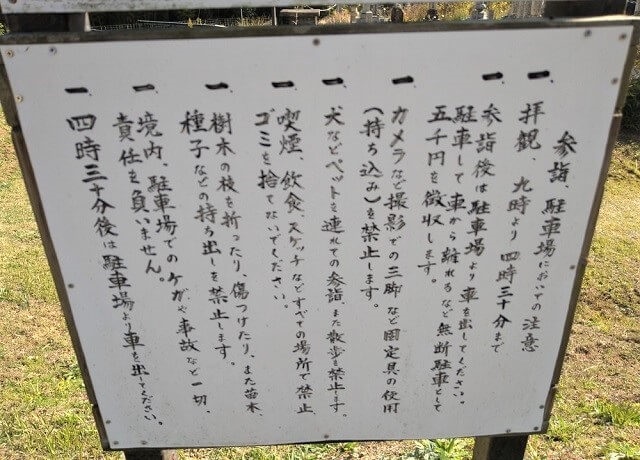 参詣、駐車場においての注意
一 拝観、九時より四時三十分まで
一 参詣後は駐車場より車を出してください。
駐車して車から離れるなど無断駐車として
五千円を徴収します。
一 カメラなど撮影での三脚など固定具の使用
(持ち込み)を禁止します。
一 犬などペットを連れての参詣また散歩を禁止します。
一 喫煙、飲食、スケッチなどすべての場所で禁止
ゴミを捨てないでください。
一 樹木の枝を折ったり、傷つけたり、また苗木、
種子などの持ち出しを禁止します。
一 境内、駐車場でのケガや事故など一切、
責任を負いません。
一 四時三十分後は駐車場より車を出してください。